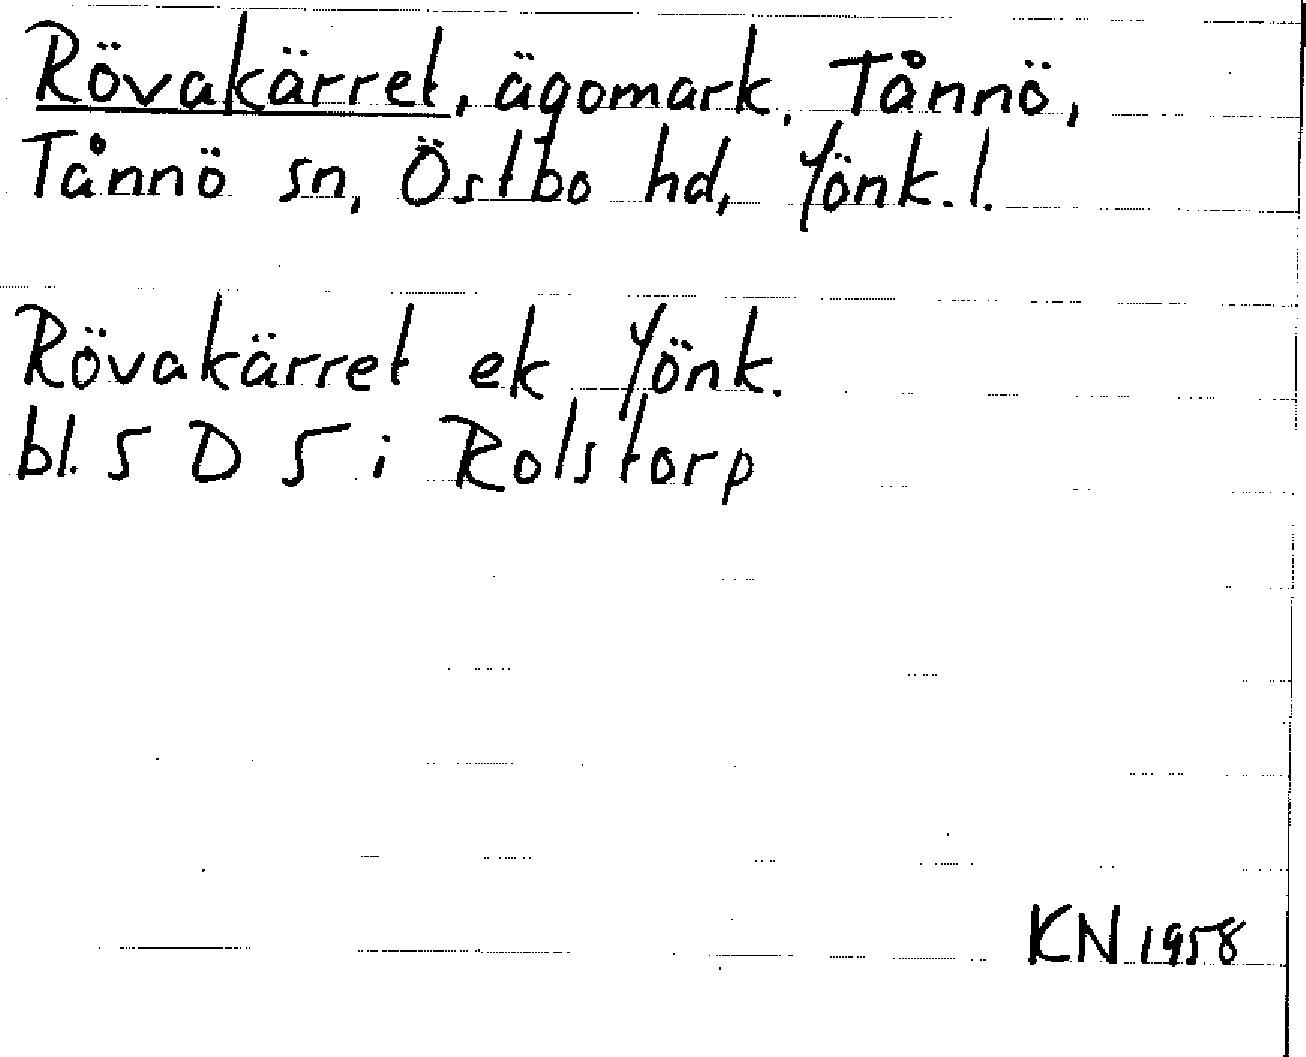 Rövakärret, ägomark, Tånnö,
Tånnö sn, Östbo hd, Jönk. l.
Rövakärret ek Jönk.
bl. 5 D 5 i Rolstorp
KN 1958